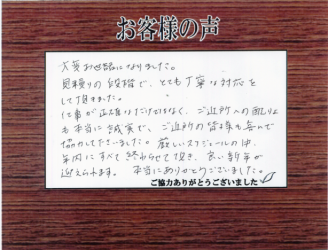 お客様の声
大変お世話になりました。
見積りの段階で、とても丁寧な対応を
して頂きました。
仕事が正確なだけではなく、ご近所への配慮
も本当に誠実で、ご近所の皆様も喜んで
協力して下さいました。厳しいスケジュールの中、
年内にすべて終わらせて頂き、良い新年が
迎えられます。本当にありがとうございました。
ご協力ありがとうございました